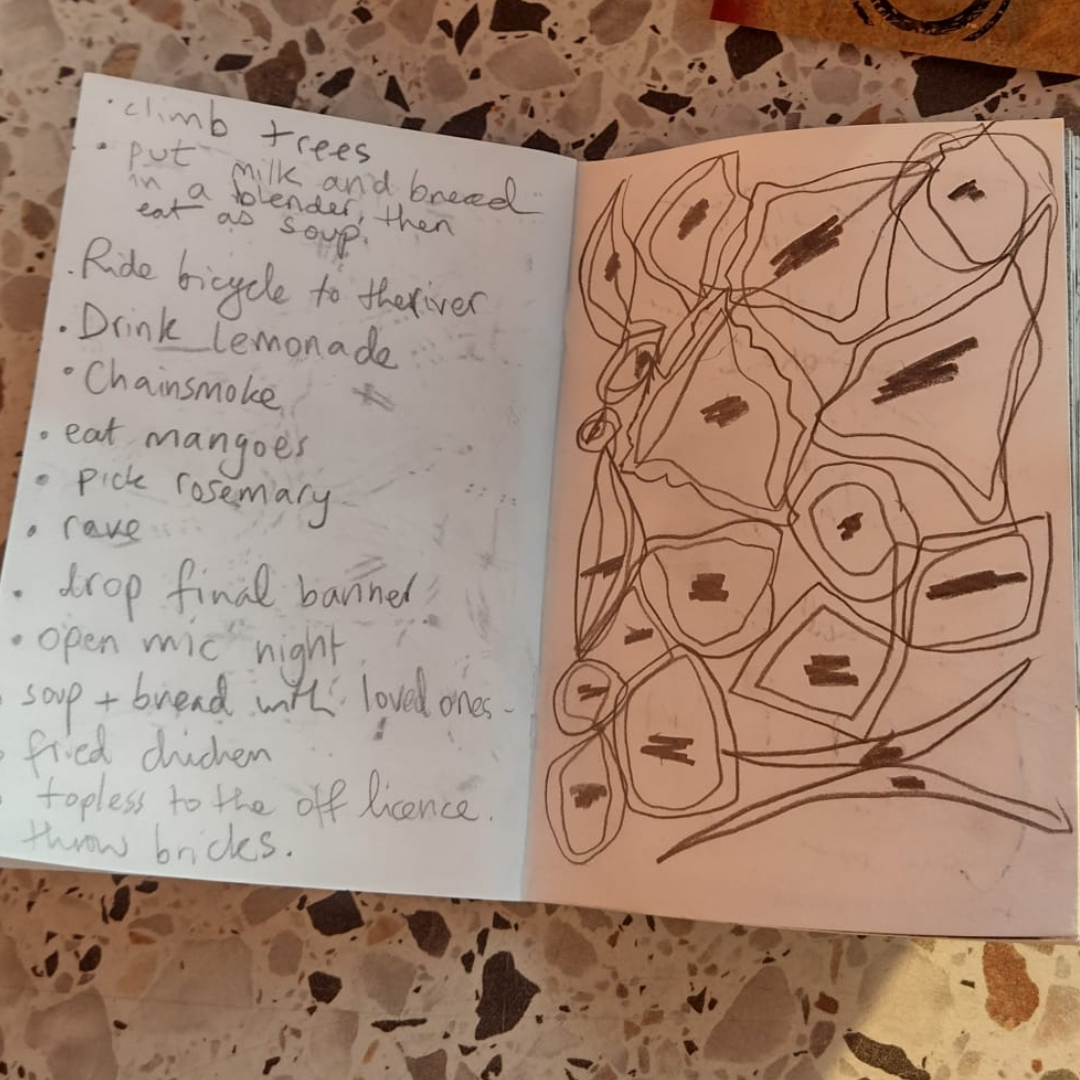 · climb trees
· put milk and bread
in a blender, then
eat as soup.
· Ride bicycle to the river
· Drink lemonade
· Chainsmoke
· eat mangoes
· pick rosemary
· rave
· drop final banner
· open mic night
· soup + bread with loved ones -
· fried chicken
· topless to the off licence.
throw bricks.